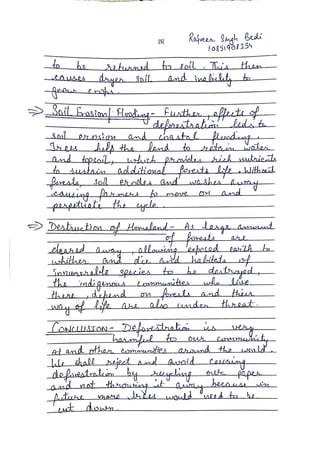 [5]
Rajveer Singh Bedi
to be returned to soil. This then
causes dryer soil and inability to
grow crops.
⇒ Soil Erosion/Flooding - Further, affects of
deforestration leds to
soil erosion and coastal flooding.
Trees help the land to retain water
and topsoil, which provides rich nutrients
to sustain additional forests life. Without
forests, soil erodes and washes away
causing farmers to move on and
perpetuate the cycle.
⇒ Destruction of Homeland - As large amount
of forests are
cleared away, allowing exposed earth to
whither and die and habitats of
innumerable species to be destroyed,
the indigenous communities who live
there, depend on forests and their
way of life are also under threat.
CONCLUSION - Deforestration is very
harmful to our community
at and other communities around the world.
We shall reject and avoid causing
deforestration by recycling our paper
and not throwing it away because in
future more trees would need to be
cut down.